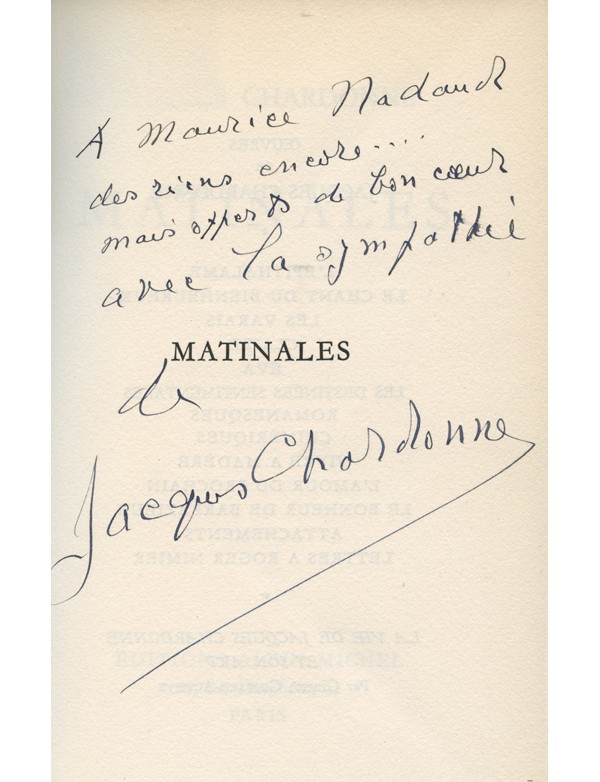 A Maurice Nadaud
des riens encore....
mais offerts de bon cœur
avec la sympathie
MATINALES
de
Jacques Chardonne